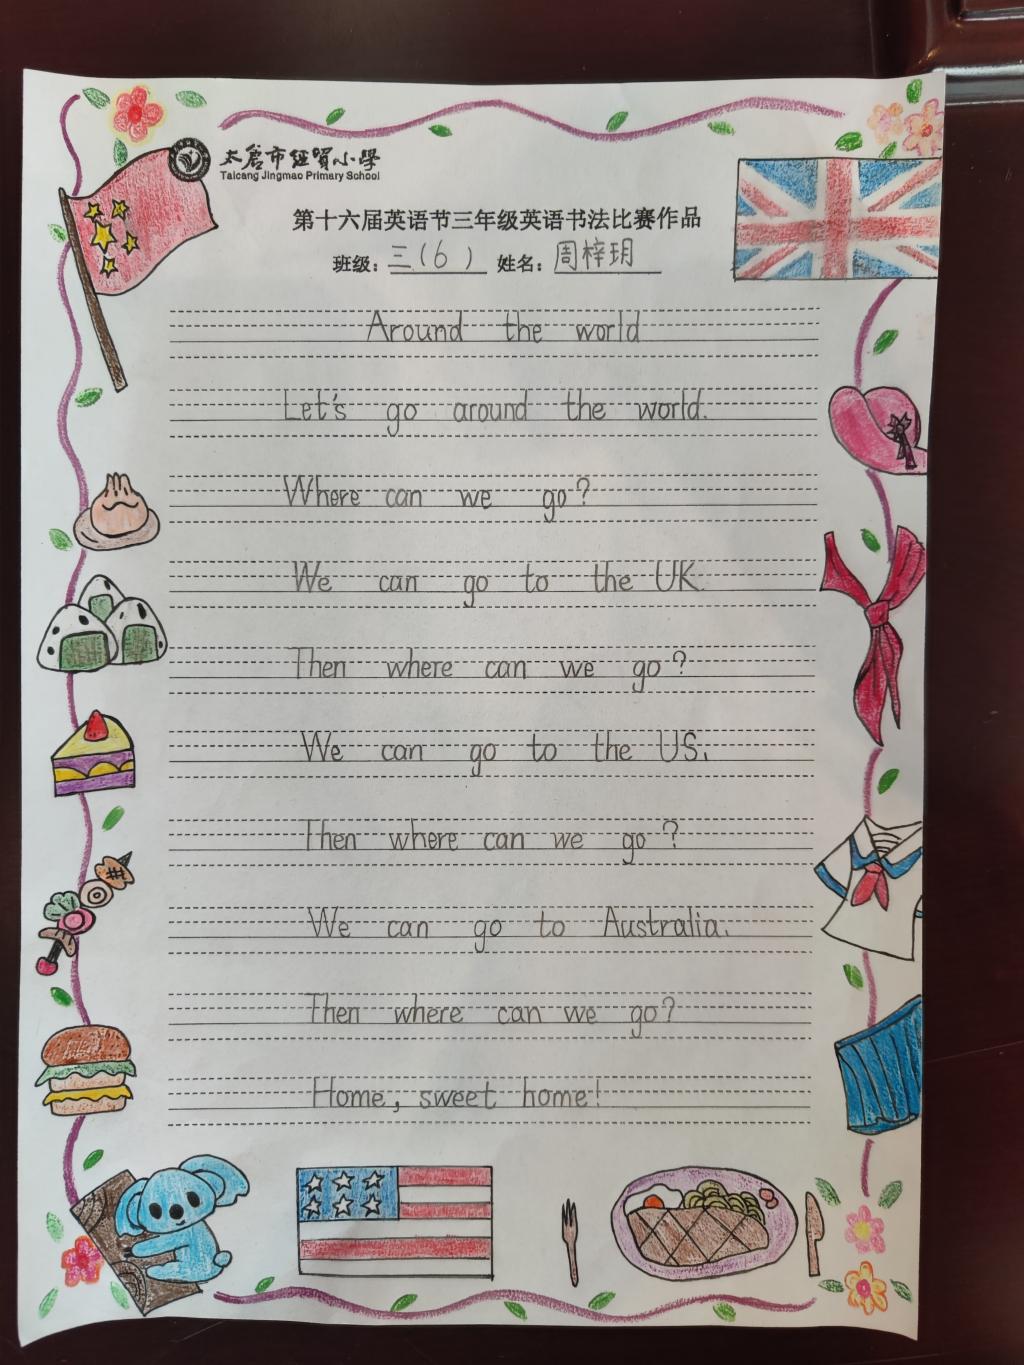 太倉市经贸小学
Taicang Jingmao Primary School
第十六届英语节三年级英语书法比赛作品
班级：三（6） 姓名：周梓玥
Around the world
Let's go around the world.
Where can we go?
We can go to the UK.
Then where can we go?
We can go to the US.
Then where can we go?
We can go to Australia.
Then where can we go?
Home, sweet home!